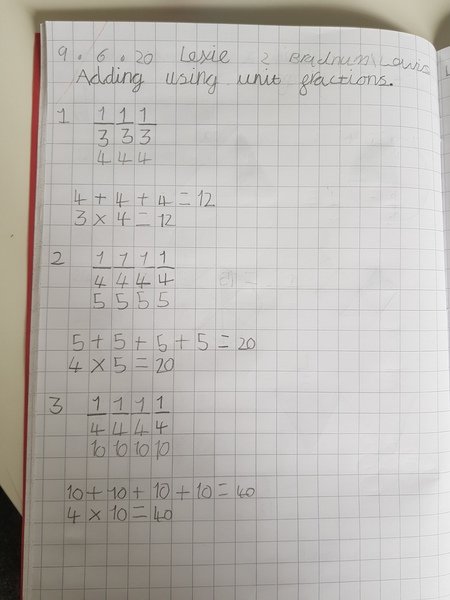 9.6.20 Lexie 2 Bradnum Lewis
Adding using unit fractions.
1 1 1 1
3 3 3
4 4 4
4 + 4 + 4 = 12
3 × 4 = 12
2 1 1 1 1
4 4 4 4
5 5 5 5
5 + 5 + 5 + 5 = 20
4 × 5 = 20
3 1 1 1 1
4 4 4 4
10 10 10 10
10 + 10 + 10 + 10 = 40
4 × 10 = 40